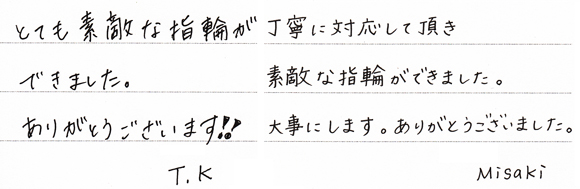 とても素敵な指輪が
できました。
ありがとうございます!!
T.K
丁寧に対応して頂き
素敵な指輪ができました。
大事にします。ありがとうございました。
Misaki